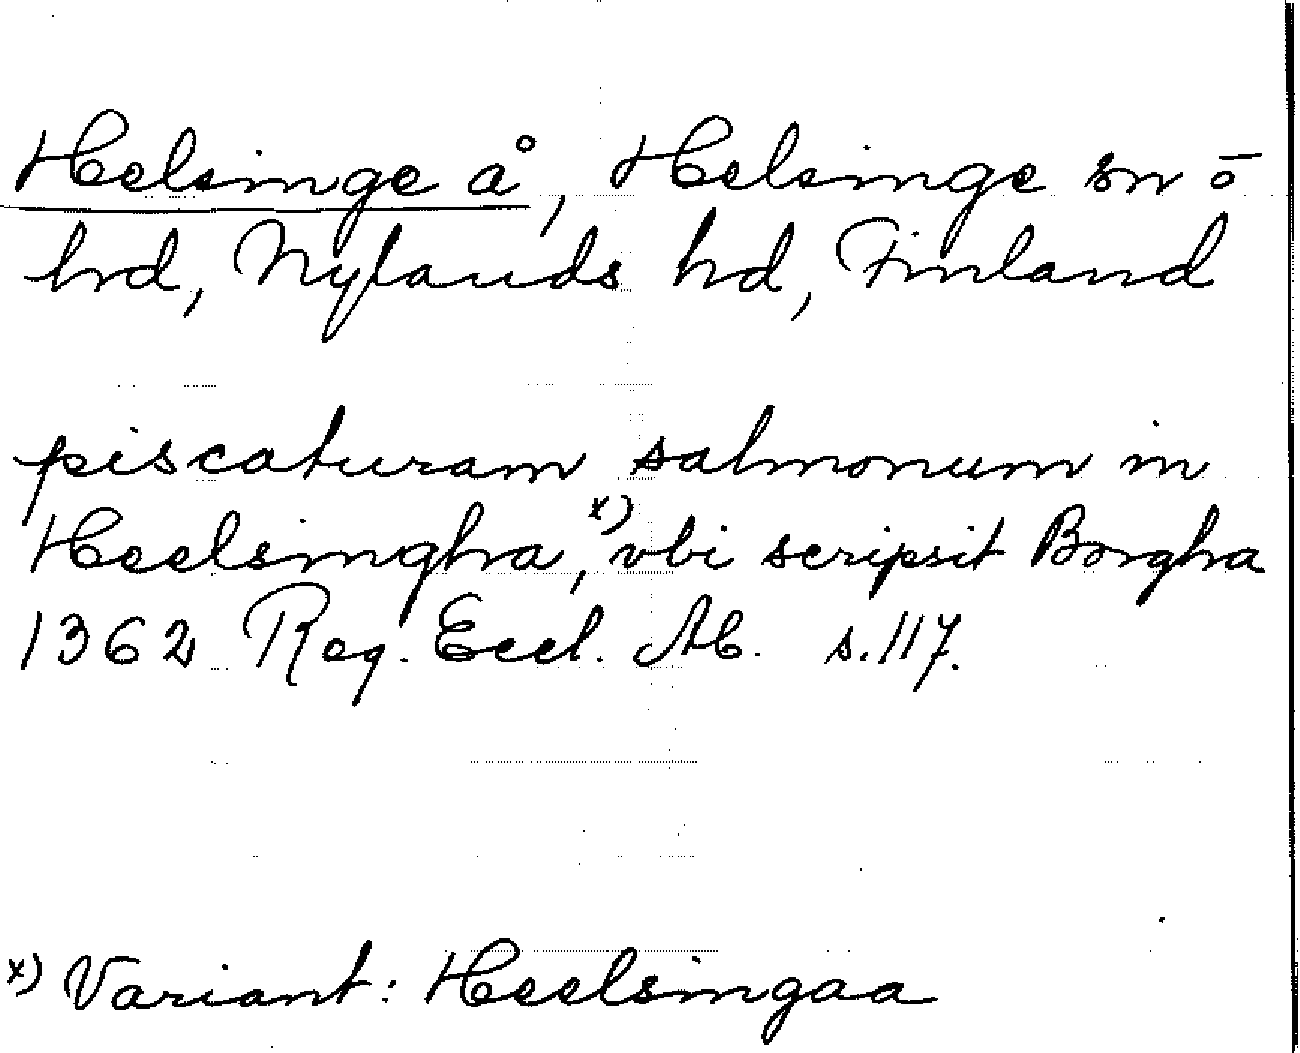 Helsinge å, Helsinge sn o
hrd, Nylands hd, Finland
piscaturam salmonum in
Heelsingha,x) vbi scripsit Borgha
1362 Reg. Eccl. Ab. s.117.
x) Variant: Heelsingaa